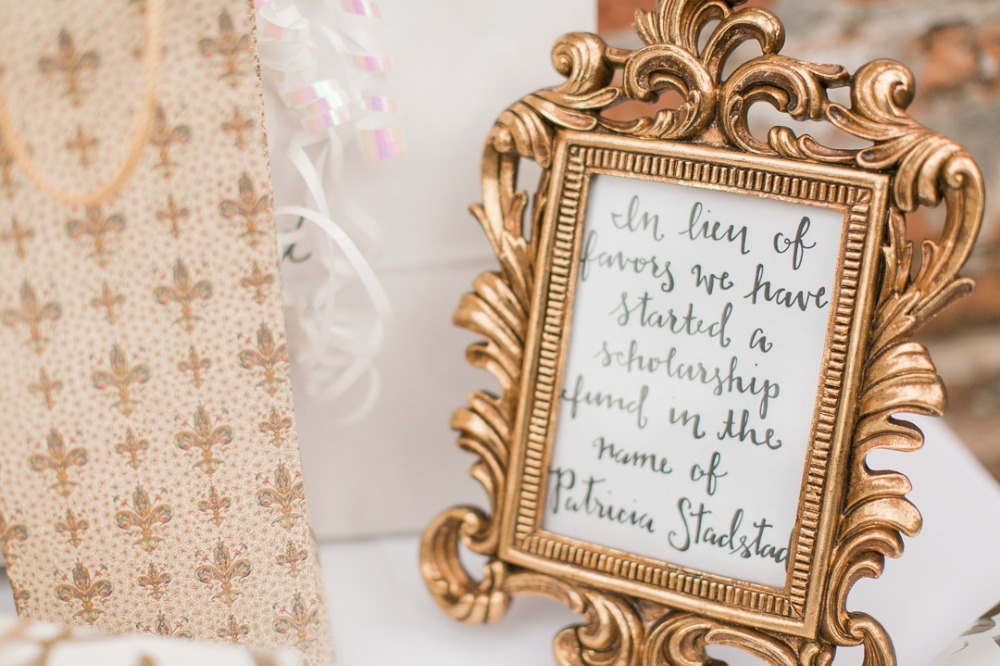 In lieu of
favors we have
started a
scholarship
fund in the
name of
Patricia Stadstad